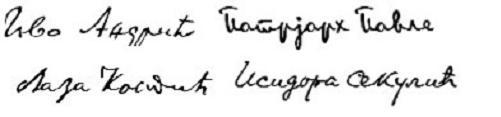 Иво Андрић Патријарх Павле
Лаза Костић Исидора Секулић